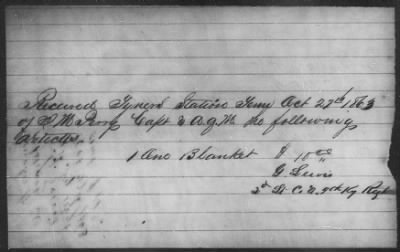 Received Tyners Station Tenn Oct 27th 1863
of S M Capt & A.Q.M. the following
articles.
1 One Blanket $ 10.00
G Lewis
2d Lt C. 2d Ky Regt